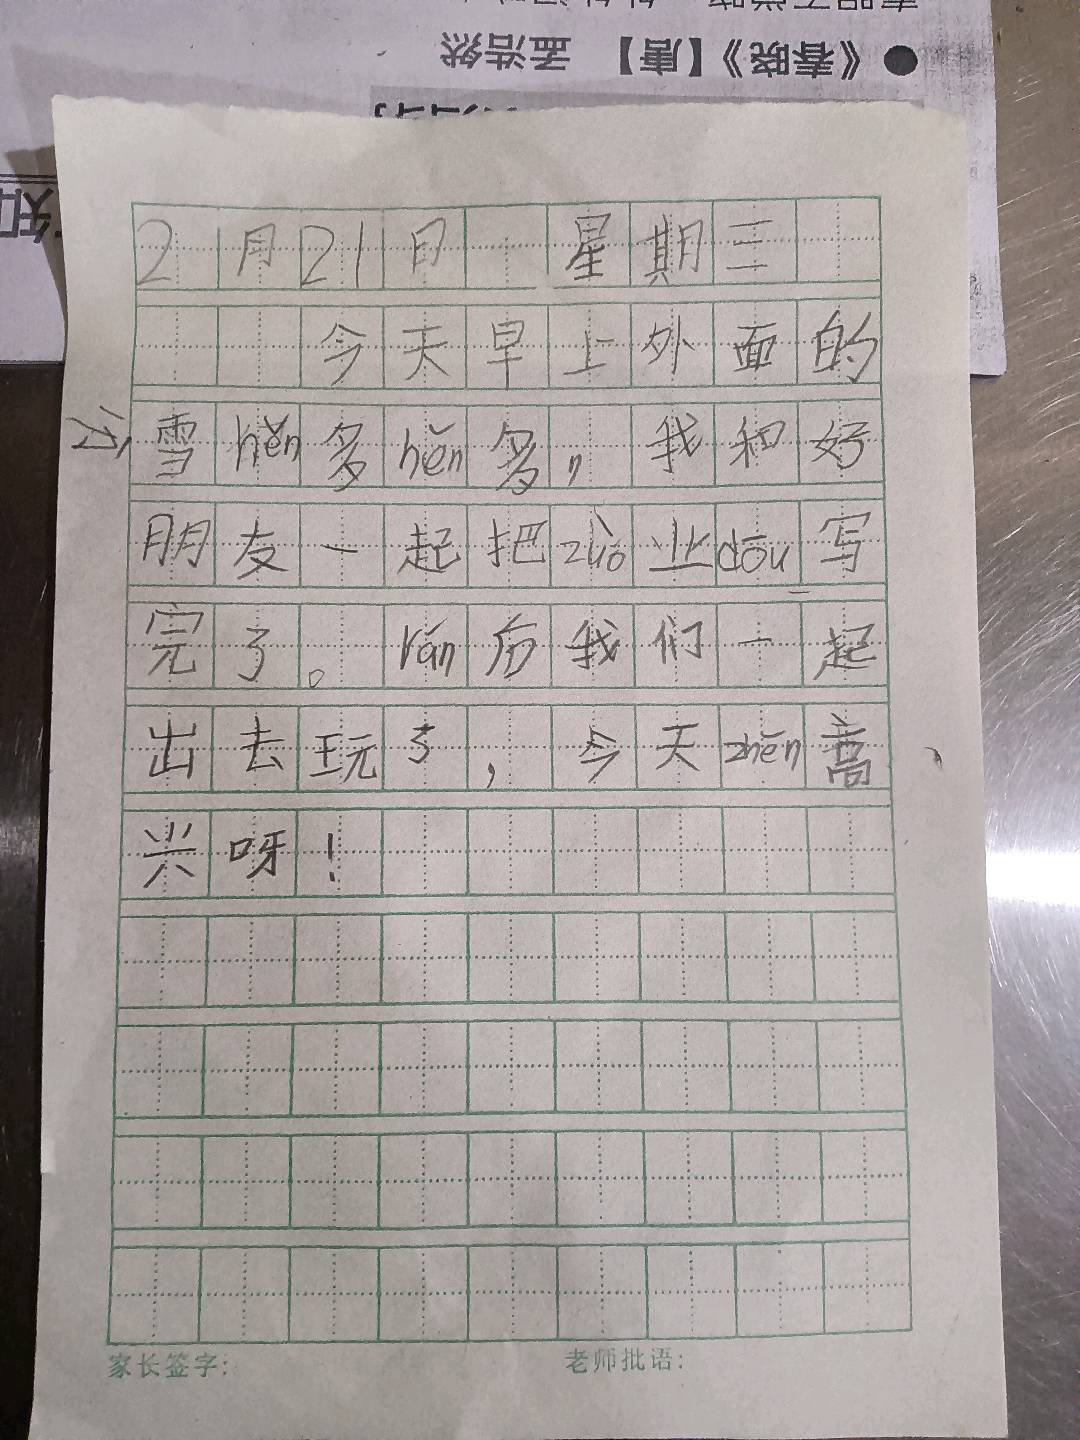 《春晓》【唐】 孟浩然
知
2月21日 星期三
今天早上外面的
雪hěn多hěn多，我和好
朋友一起把zuò业dōu写
完了。rán后我们一起
出去玩了，今天zhēn高
兴呀！
家长签字： 老师批语：